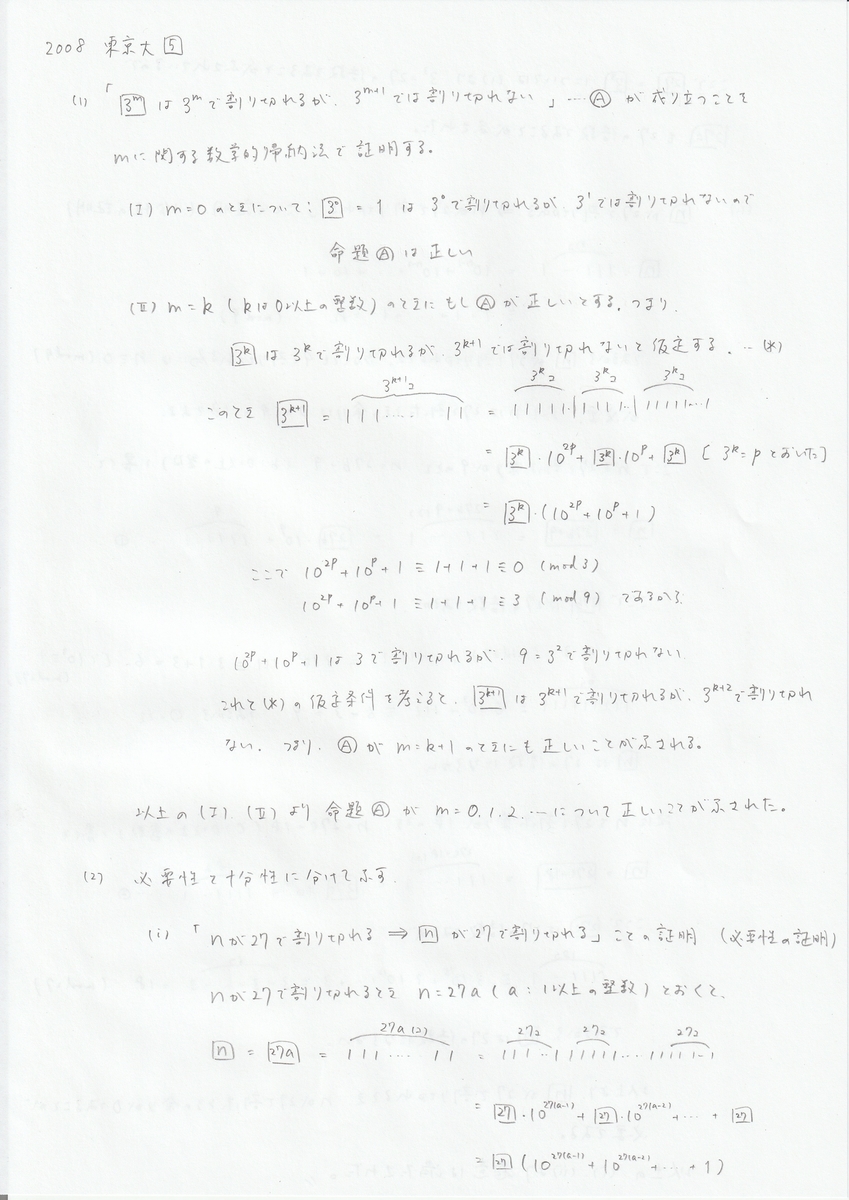 2008 東京大 [5]
(1) 「[3^m] は 3^m で割り切れるが、3^{m+1} では割り切れない」…Ⓐ が成り立つことを
mに関する数学的帰納法で証明する。
(I) m=0 のときについて; [3^0] = 1 は 3^0 で割り切れるが 3^1 では割り切れないので
命題Ⓐは正しい
(II) m=k (kは0以上の整数) のときにもしⒶが正しいとする。つまり、
[3^k] は 3^k で割り切れるが、3^{k+1} では割り切れないと仮定する。…(*)
3^{k+1}コ 3^kコ 3^kコ 3^kコ
このとき [3^{k+1}] = 111……11 = 11111…|1111…|11111…1
= [3^k]・10^{2p} + [3^k]・10^p + [3^k] [3^k=p とおいた]
= [3^k]・(10^{2p}+10^p+1)
ここで 10^{2p}+10^p+1 ≡ 1+1+1 ≡ 0 (mod 3)
10^{2p}+10^p+1 ≡ 1+1+1 ≡ 3 (mod 9) であるから
10^{2p}+10^p+1 は 3で割り切れるが、9=3^2 で割り切れない
これと(*)の仮定条件を考えると、[3^{k+1}] は 3^{k+1} で割り切れるが、3^{k+2} で割り切れ
ない。つまり、Ⓐが m=k+1 のときにも正しいことが示される。
以上の (I) (II) より 命題Ⓐが m=0,1,2,…について正しいことが示された。
(2) 必要性と十分性に分けて示す。
(i) 「nが27で割り切れる ⇒ [n] が27で割り切れる」ことの証明 (必要性の証明)
nが27で割り切れるとき n=27a (a:1以上の整数) とおくと、
27a(コ) 27コ 27コ 27コ
[n] = [27a] = 111……11 = 111…1 11111…11111…1
= [27]・10^{27(a-1)} + [27]・10^{27(a-2)} + … + [27]
= [27] (10^{27(a-1)} + 10^{27(a-2)} + … + 1)